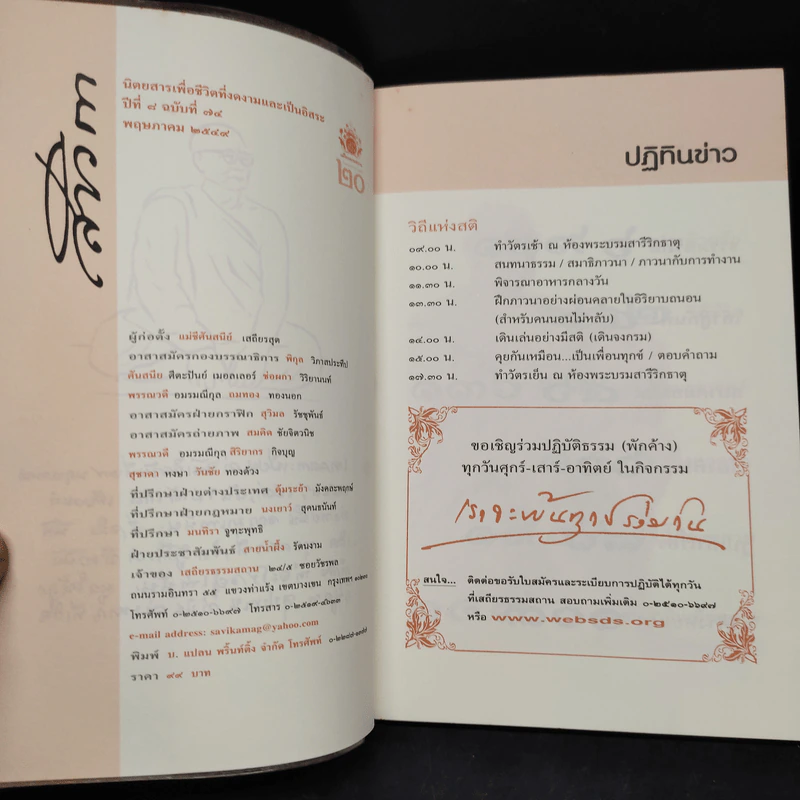 สาวิกา
นิตยสารเพื่อชีวิตที่งดงามและเป็นอิสระ
ปีที่ ๘ ฉบับที่ ๗๔
พฤษภาคม ๒๕๔๙
๒๐
ผู้ก่อตั้ง แม่ชีศันสนีย์ เสถียรสุต
อาสาสมัครกองบรรณาธิการ พิกุล วิภาสประทีป
ศันสนีย ศีตะปันย์ เมอลเลอร์ ช่อผกา วิริยานนท์
พรรณวดี อมรมณีกุล ถมทอง ทองนอก
อาสาสมัครฝ่ายกราฟิก สุวิมล รัชชุพันธ์
อาสาสมัครถ่ายภาพ สมคิด ชัยจิตวนิช
พรรณวดี อมรมณีกุล สิริยากร กิจบุญ
สุชาดา หงษา วันชัย ทองด้วง
ที่ปรึกษาฝ่ายต่างประเทศ คุ้มระย้า มังคละพฤกษ์
ที่ปรึกษาฝ่ายกฎหมาย นงเยาว์ สุคนธนันท์
ที่ปรึกษา มนทิรา จูฑะพุทธิ
ฝ่ายประชาสัมพันธ์ สายน้ำผึ้ง รัตนงาม
เจ้าของ เสถียรธรรมสถาน ๒๔/๕ ซอยวัชรพล
ถนนรามอินทรา ๕๕ แขวงท่าแร้ง เขตบางเขน กรุงเทพฯ
โทรศัพท์ ๐-๒๕๑๐-๖๖๙๗ โทรสาร ๐-๒๕๑๙-๔๖๓๓
e-mail address: savikamag@yahoo.com
พิมพ์ บ. แปลน พริ้นท์ติ้ง จำกัด โทรศัพท์
ราคา ๙๙ บาท
ปฏิทินข่าว
วิถีแห่งสติ
๐๙.๐๐ น. ทำวัตรเช้า ณ ห้องพระบรมสารีริกธาตุ
๑๐.๐๐ น. สนทนาธรรม / สมาธิภาวนา / ภาวนากับการทำงาน
๑๑.๓๐ น. พิจารณาอาหารกลางวัน
๑๓.๓๐ น. ฝึกภาวนาอย่างผ่อนคลายในอิริยาบถนอน
(สำหรับคนนอนไม่หลับ)
๑๔.๐๐ น. เดินเล่นอย่างมีสติ (เดินจงกรม)
๑๕.๐๐ น. คุยกันเหมือน...เป็นเพื่อนทุกข์ / ตอบคำถาม
๑๗.๓๐ น. ทำวัตรเย็น ณ ห้องพระบรมสารีริกธาตุ
ขอเชิญร่วมปฏิบัติธรรม (พักค้าง)
ทุกวันศุกร์-เสาร์-อาทิตย์ ในกิจกรรม
เราจะพ้นทุกข์ร่วมกัน
สนใจ... ติดต่อขอรับใบสมัครและระเบียบการปฏิบัติได้ทุกวัน
ที่เสถียรธรรมสถาน สอบถามเพิ่มเติม ๐-๒๕๑๐-๖๖๙๗
หรือ www.websds.org